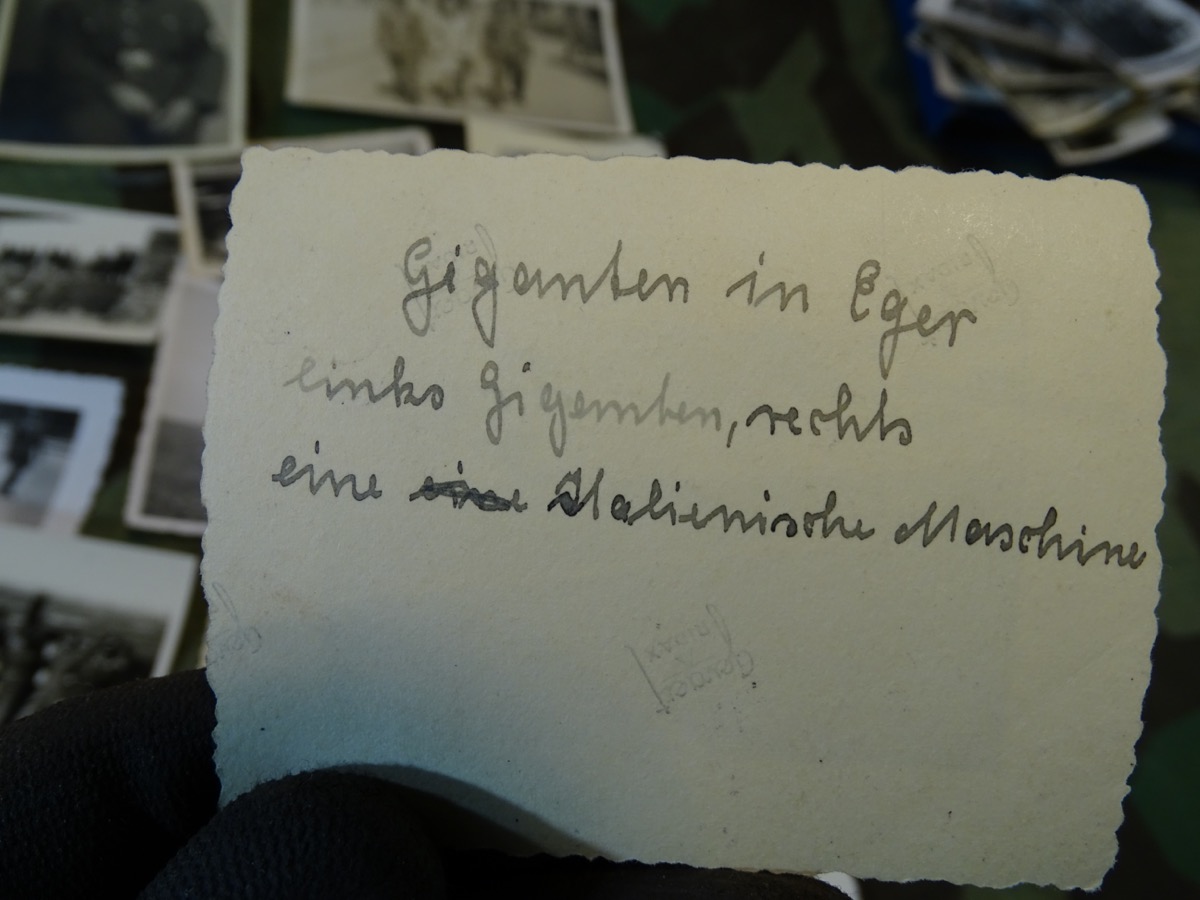 Giganten in Eger
links Giganten, rechts
eine eine Italienische Maschine